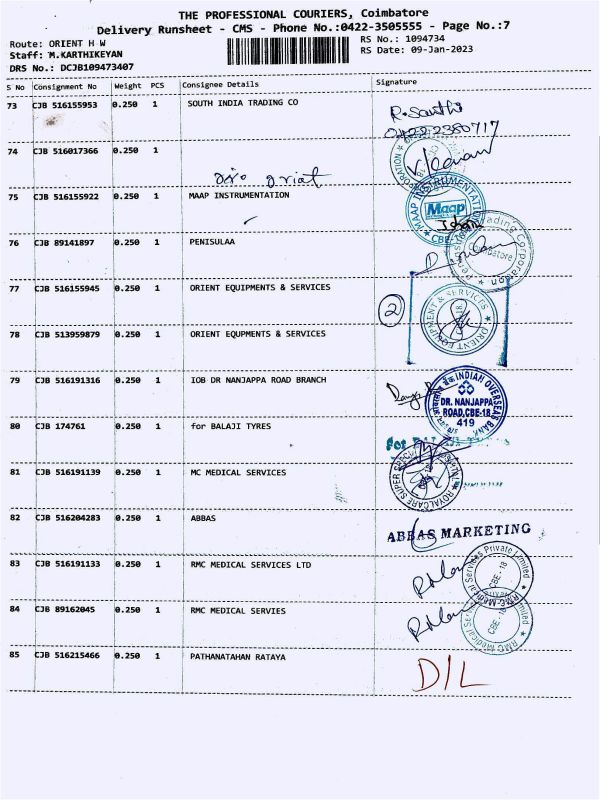 THE PROFESSIONAL COURIERS, Coimbatore
Delivery Runsheet - CMS - Phone No.:0422-3505555 - Page No.:7
Route: ORIENT H W
RS No.: 1094734
Staff: M.KARTHIKEYAN
RS Date: 09-Jan-2023
DRS No.: DCJB109473407
S No Consignment No Weight PCS Consignee Details Signature
73 CJB 516155953 0.250 1 SOUTH INDIA TRADING CO
0422 2380717
74 CJB 516017366 0.250 1
75 CJB 516155922 0.250 1 MAAP INSTRUMENTATION
MAAP INSTRUMENTATION
Maap
CBE-
76 CJB 89141897 0.250 1 PENISULAA
Trading Corporation
Coimbatore
77 CJB 516155945 0.250 1 ORIENT EQUIPMENTS & SERVICES
2
ORIENT EQUIPMENT & SERVICES
78 CJB 513959879 0.250 1 ORIENT EQUPMENTS & SERVICES
79 CJB 516191316 0.250 1 IOB DR NANJAPPA ROAD BRANCH
INDIAN OVERSEAS BANK
DR. NANJAPPA
ROAD,CBE-18
419
80 CJB 174761 0.250 1 for BALAJI TYRES
For
81 CJB 516191139 0.250 1 MC MEDICAL SERVICES
ROYALCARE SUPER
82 CJB 516204283 0.250 1 ABBAS
ABBAS MARKETING
83 CJB 516191133 0.250 1 RMC MEDICAL SERVICES LTD
RMC Medical Services Private Limited
CBE-18
84 CJB 89162045 0.250 1 RMC MEDICAL SERVIES
RMC Medical
CBE-18
85 CJB 516215466 0.250 1 PATHANATAHAN RATAYA
D/L